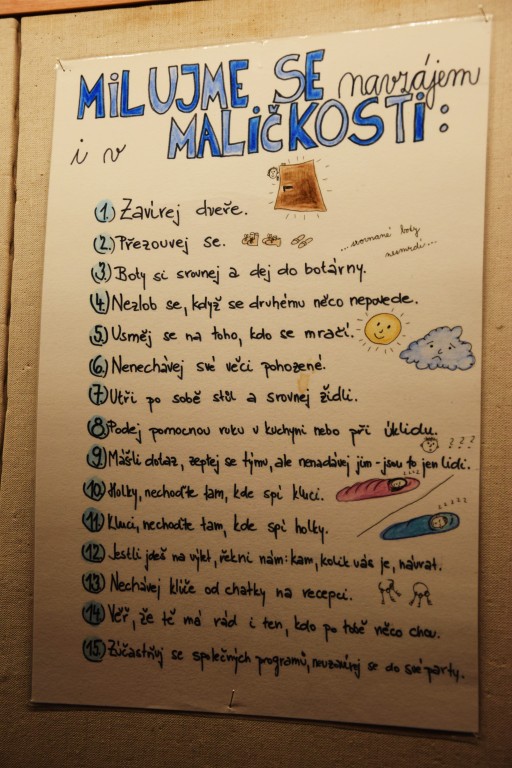 MILUJME SE navzájem
i v MALIČKOSTI:
1. Zavírej dveře.
2. Přezouvej se.
...srovnané boty
nesmrdí...
3. Boty si srovnej a dej do botárny.
4. Nezlob se, když se druhému něco nepovede.
5. Usměj se na toho, kdo se mračí.
6. Nenechávej své věci pohozené.
7. Utři po sobě stůl a srovnej židli.
8. Podej pomocnou ruku v kuchyni nebo při úklidu.
???
9. Máš-li dotaz, zeptej se týmu, ale nenadávej jim - jsou to jen lidi.
10. Holky, nechoďte tam, kde spí kluci.
zzzz
11. Kluci, nechoďte tam, kde spí holky.
zzzz
12. Jestli jdeš na výlet, řekni nám: kam, kolik vás je, návrat.
13. Nechávej klíče od chatky na recepci.
14. Věř, že tě má rád i ten, kdo po tobě něco chce.
15. Zúčastňuj se společných programů, neuzavírej se do své party.